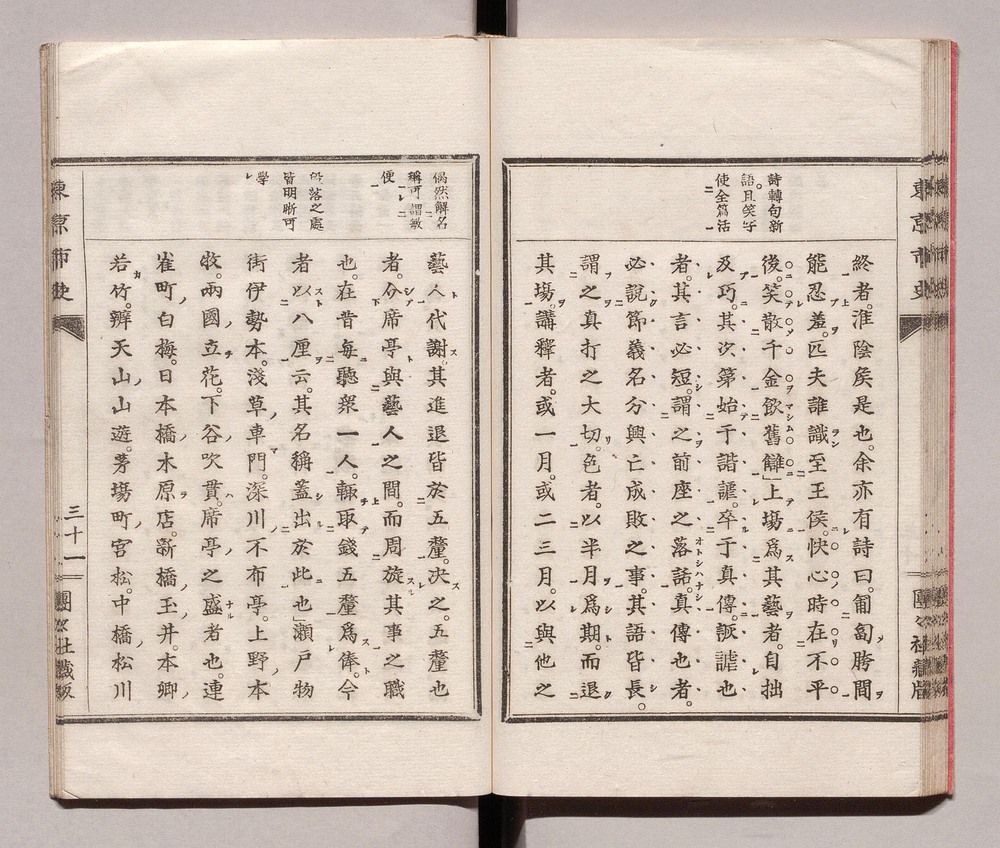 詩轉句新
語且笑字
使全篇活
終者。淮陰矦是也。余亦有詩曰。匍匐胯間
能忍羞。匹夫誰識至王侯。快心時在不平
後。笑散千金飲舊讎」上塲爲其藝者。自拙
及巧。其次第始于諧謔。卒于真傳。詼謔也
者。其言必短。謂之前座之落話。真傳也者。
必說節義名分興亡成敗之事。其語皆長。
謂之真打之大切。色者。以半月爲期。而退
其塲。講釋者。或一月。或二三月。以與他之
偶然解名
稱可謂敏
便
段落之處
皆明晰可
學
藝人代謝。其進退皆於五釐。决之。五釐也
者。分席亭與藝人之間。而周旋其事之職
也。在昔每聽衆一人。輙取錢五釐爲俸。今
者以八厘云。其名稱蓋出於此也」瀨戶物
街伊勢本。淺草車門。深川不布亭。上野本
牧。兩國立花。下谷吹貫。席亭之盛者也。連
雀町白梅。日本橋木原店。新橋玉井。本鄉
若竹。辨天山山遊。茅塲町宮松。中橋松川
東京市史
三十一
團々社藏版